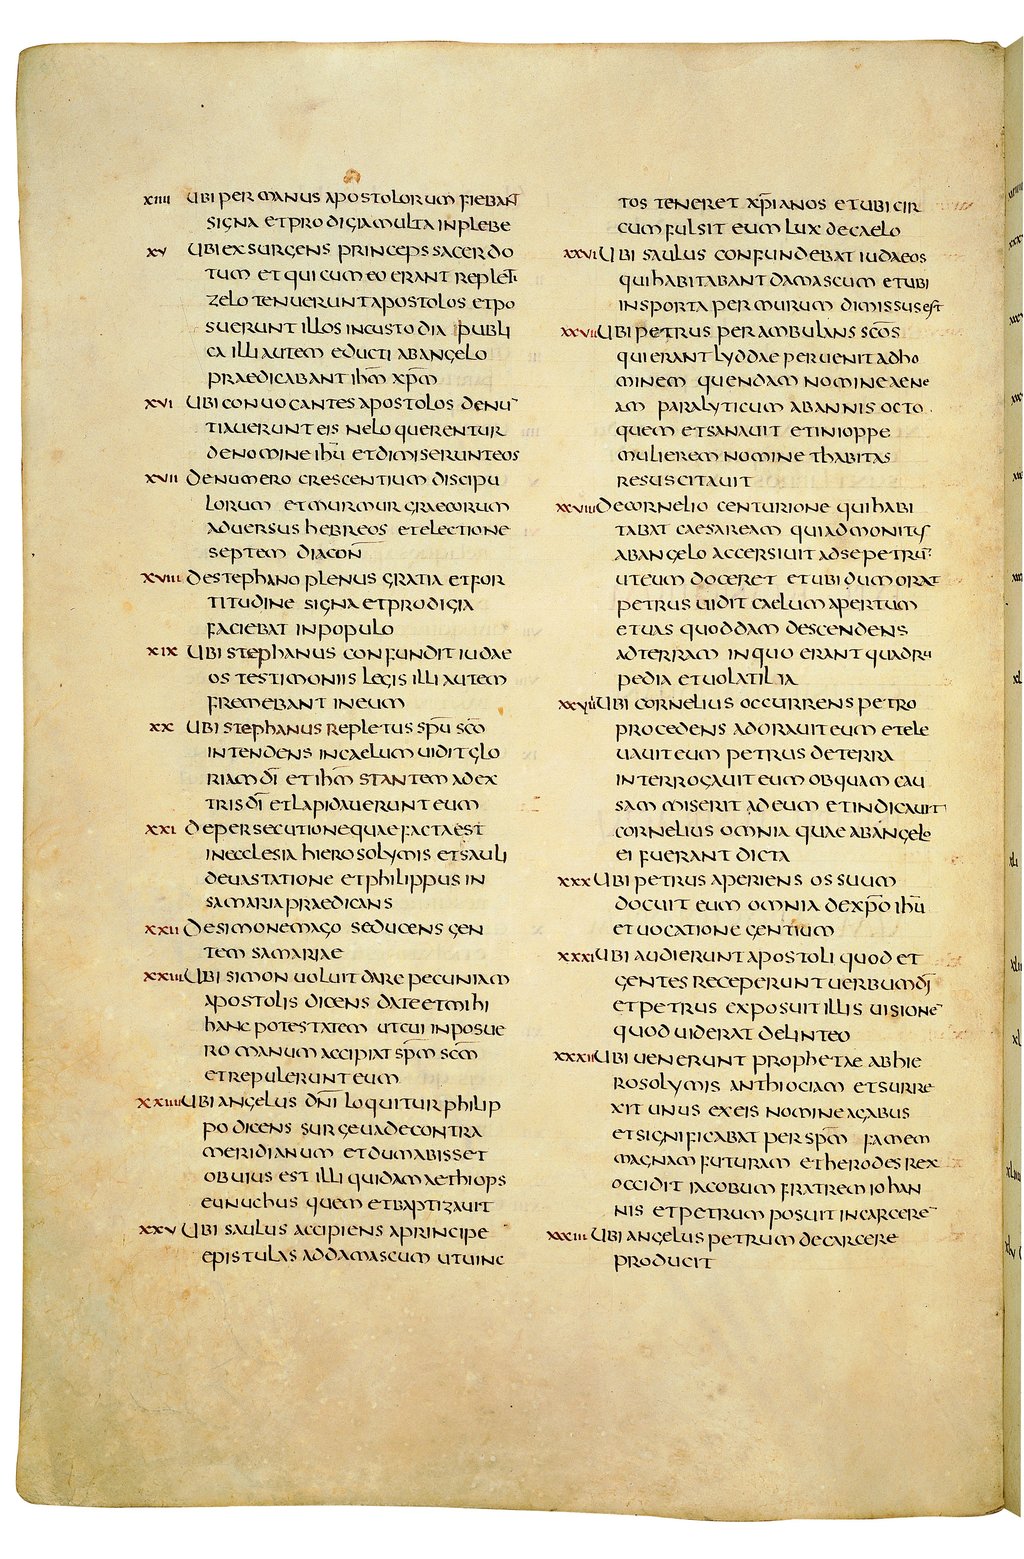 xiiii Ubi per manus apostolorum fiebant
signa et prodigia multa in plebe
xv Ubi exsurgens princeps sacerdo
tum et qui cum eo erant repleti
zelo tenuerunt apostolos et po
suerunt illos in custodia publi
ca illi autem educti ab angelo
praedicabant ihm̅ xpm̅
xvi Ubi conuocantes apostolos denu̅
tiauerunt eis ne loquerentur
de nomine ihu̅ et dimiserunt eos
xvii De numero crescentium discipu
lorum et murmur graecorum
aduersus hebreos et electione
septem diacon̅
xviii De stephano plenus gratia et for
titudine signa et prodigia
faciebat in populo
xix Ubi stephanus confundit iudae
os testimoniis legis illi autem
fremebant in eum
xx Ubi stephanus repletus spu̅ sco̅
intendens in caelum uidit glo
riam di̅ et ihm̅ stantem ad ex
tris di̅ et lapidauerunt eum
xxi De persecutione quae facta est
in ecclesia hierosolymis et sauli
deuastatione et philippus in
samaria praedicans
xxii De simone mago seducens gen
tem samariae
xxiii Ubi simon uoluit dare pecuniam
apostolis dicens date et mihi
hanc potestatem ut cui inposue
ro manum accipiat spm̅ scm̅
et repulerunt eum
xxiiii Ubi angelus dni̅ loquitur philip
po dicens surge uade contra
meridianum et dum abisset
obuius est illi quidam aethiops
eunuchus quem et baptizauit
xxv Ubi saulus accipiens a principe
epistulas ad damascum ut uinc
tos teneret xp̅ianos et ubi cir
cumfulsit eum lux de caelo
xxvi Ubi saulus confundebat iudaeos
qui habitabant damascum et ubi
in sporta per murum dimissus est
xxvii Ubi petrus perambulans sco̅s
qui erant lyddae peruenit ad ho
minem quendam nomine aene
am paralyticum ab annis octo
quem et sanauit et in ioppe
mulierem nomine thabitas
resuscitauit
xxviii De cornelio centurione qui habi
tabat caesaream qui admonitus
ab angelo accersiuit ad se petru̅
ut eum doceret et ubi dum orat
petrus uidit caelum apertum
et uas quoddam descendens
ad terram in quo erant quadru
pedia et uolatilia
xxviiii Ubi cornelius occurrens petro
procedens adorauit eum et ele
uauit eum petrus de terra
interrogauit eum ob quam cau
sam miserit ad eum et indicauit
cornelius omnia quae ab angelo
ei fuerant dicta
xxx Ubi petrus aperiens os suum
docuit eum omnia de xpo̅ ihu̅
et uocatione gentium
xxxi Ubi audierunt apostoli quod et
gentes receperunt uerbum di̅
et petrus exposuit illis uisione̅
quod uiderat de linteo
xxxii Ubi uenerunt prophetae ab hie
rosolymis anthiociam et surre
xit unus ex eis nomine agabus
et significabat per spm̅ famem
magnam futuram et herodes rex
occidit iacobum fratrem iohan
nis et petrum posuit in carcere̅
xxxiii Ubi angelus petrum de carcere
producit